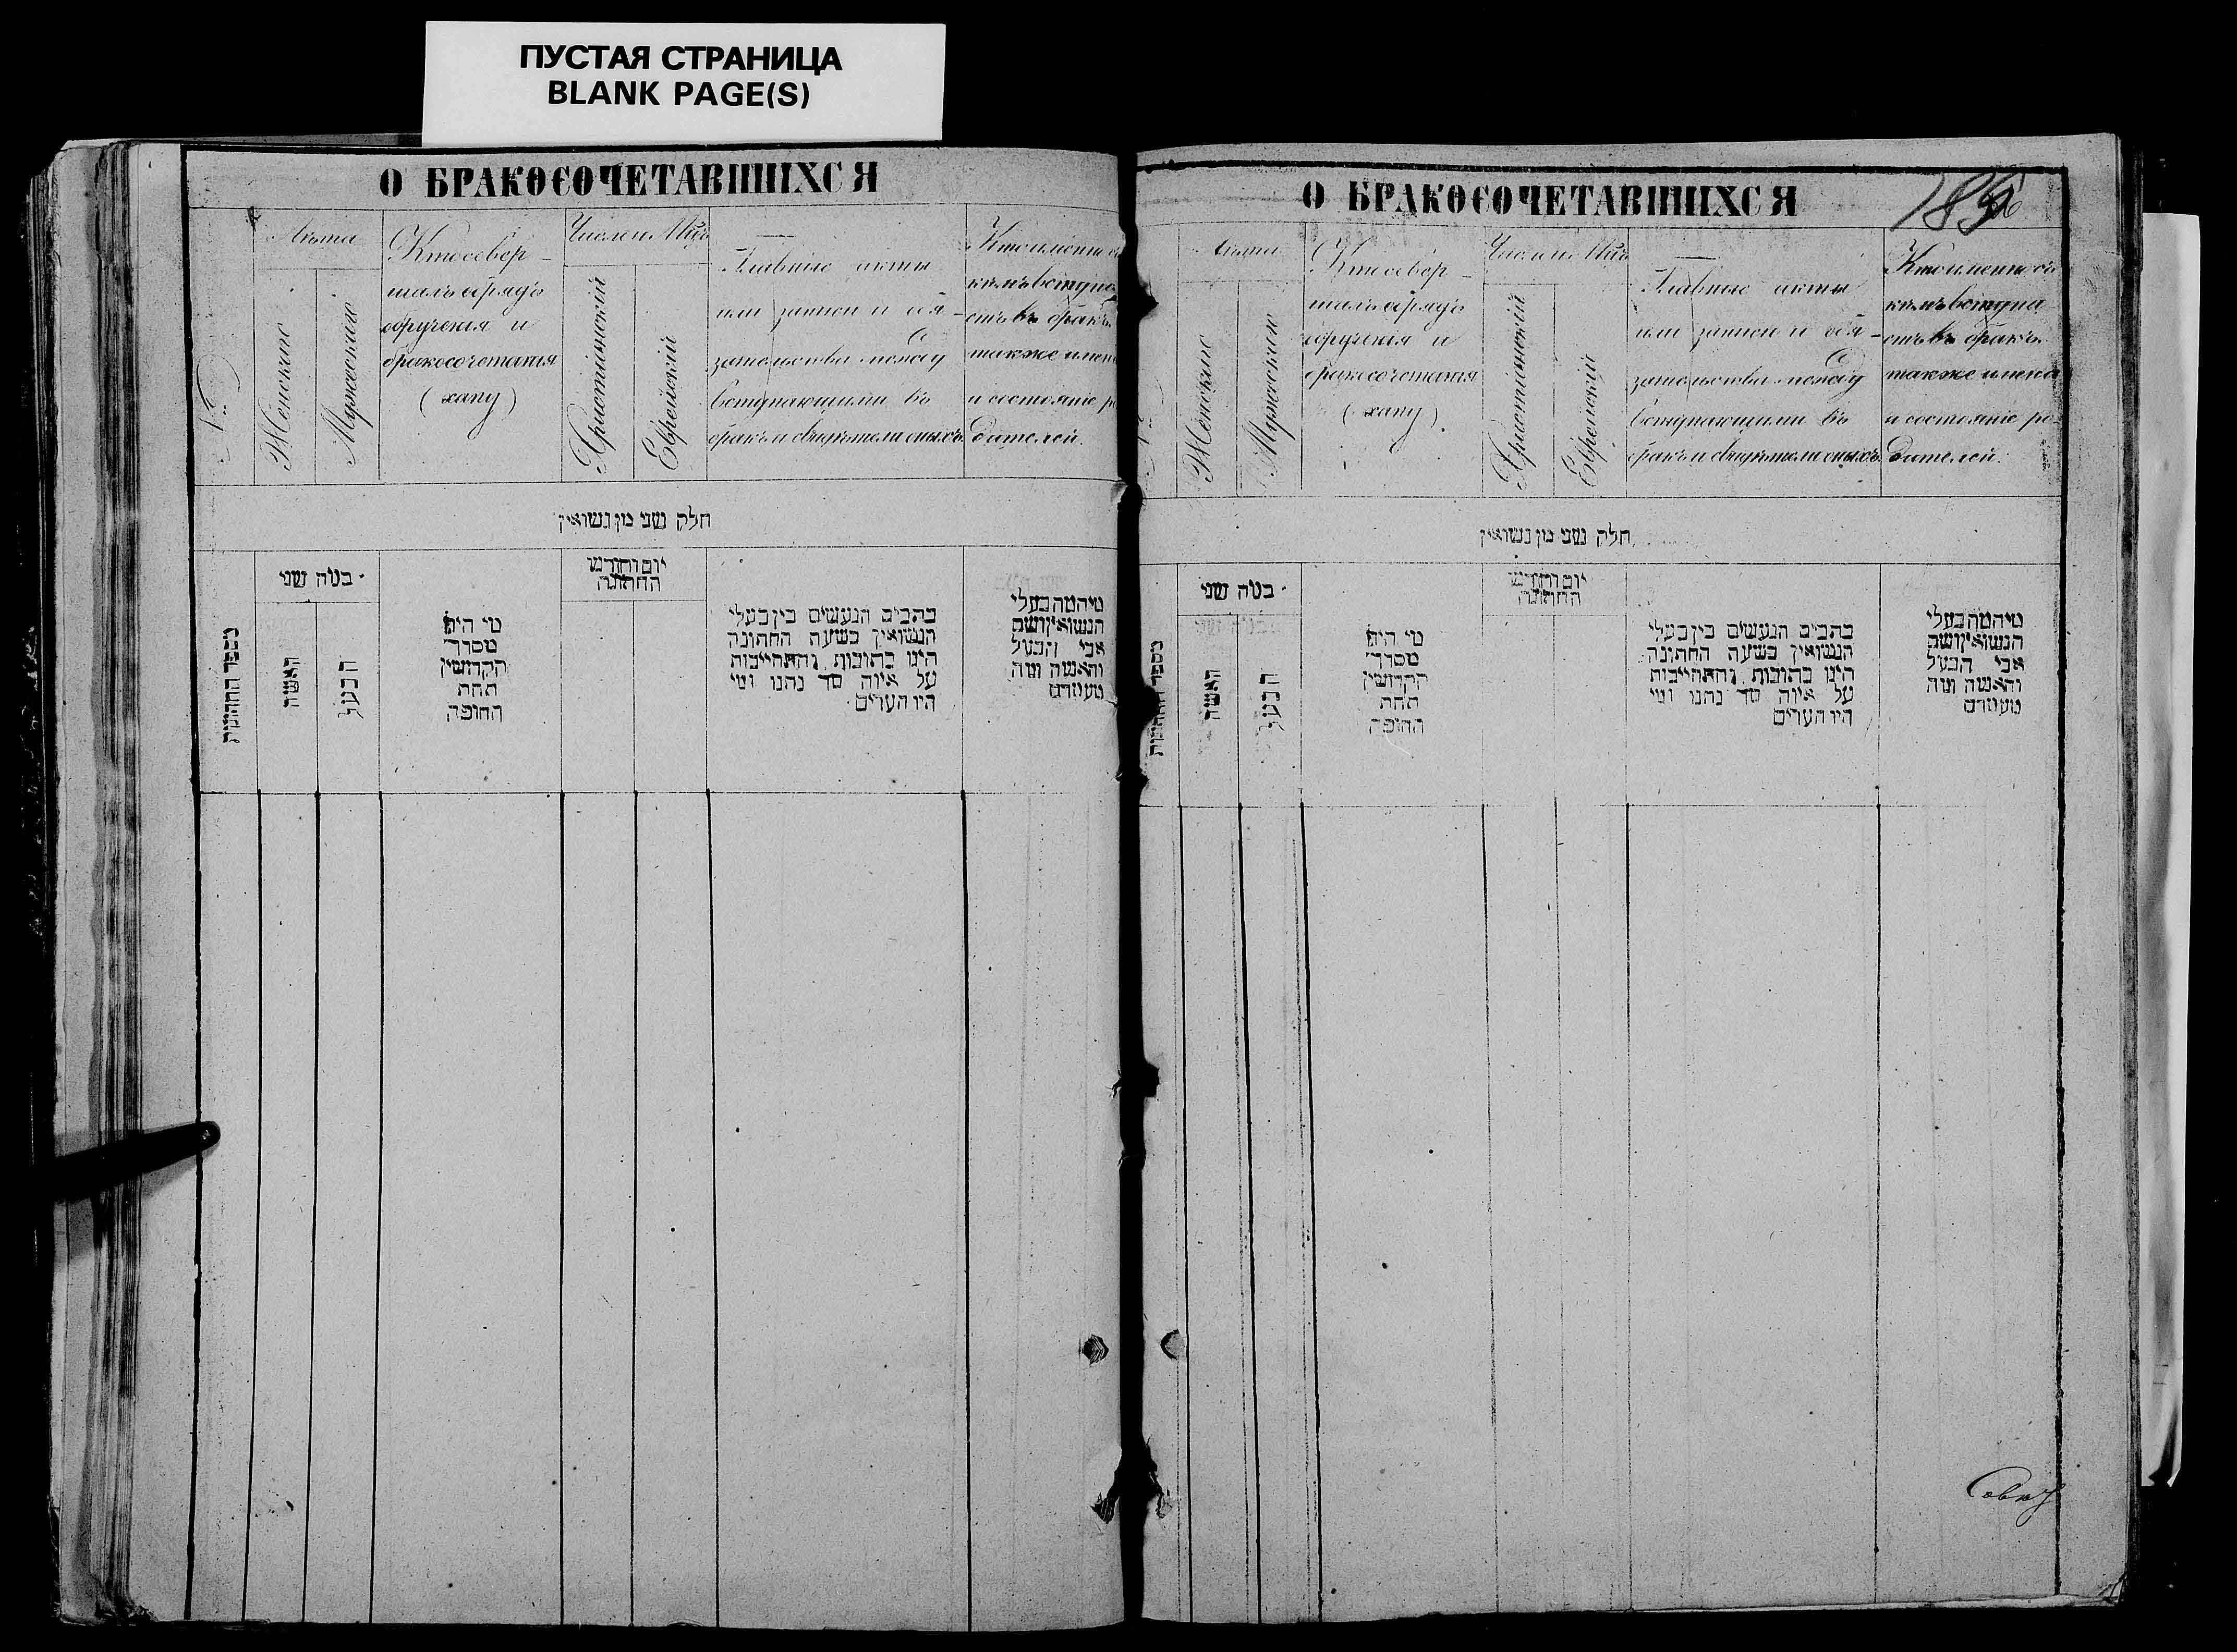 ПУСТАЯ СТРАНИЦА
BLANK PAGE(S)
О БРАКОСОЧЕТАВШИХСЯ
№
Лѣта
Женскіе
Мужескіе
Кто совер-
шалъ обрядъ
обрученія и
бракосочетанія
(хапу)
Число и Мѣс
Христіанскій
Еврейскій
Главные акты
или записи и обя-
зательства между
вступающими въ
бракъ и свидѣтели оныхъ
Кто именно съ
кѣмъ вступа
етъ въ бракъ
также имен
и состояніе р
дителей.
חלק שני מן נשואין
מספר החתונות
כמה שני
האשה
הבעל
מי היה
מסדר
הקדושין
תחת
החופה
יום וחודש
החתונה
כתבים הנעשים בין בעלי
הנשואין בשעת החתונה
היינו כתובות והתחייבות
על איזה סך נתנו ומי
היו העדים
הנשואין ושם
אבי הבעל
והאשה ומה
מעמדם
О БРАКОСОЧЕТАВШИХСЯ
Лѣта
Женскіе
Мужескіе
Кто совер-
шалъ обрядъ
обрученія и
бракосочетанія
(хапу)
Число и Мѣс
Христіанскій
Еврейскій
Главные акты
или записи и обя-
зательства между
вступающими въ
бракъ и свидѣтели оныхъ
Кто именно съ
кѣмъ вступа
етъ въ бракъ
также имена
и состояніе ро-
дителей.
חלק שני מן נשואין
מספר החתונות
כמה שני
האשה
הבעל
מי היה
מסדר
הקדושין
תחת
החופה
יום וחודש
החתונה
כתבים הנעשים בין בעלי
הנשואין בשעת החתונה
היינו כתובות והתחייבות
על איזה סך נתנו ומי
היו העדים
הנשואין ושם
אבי הבעל
והאשה ומה
מעמדם